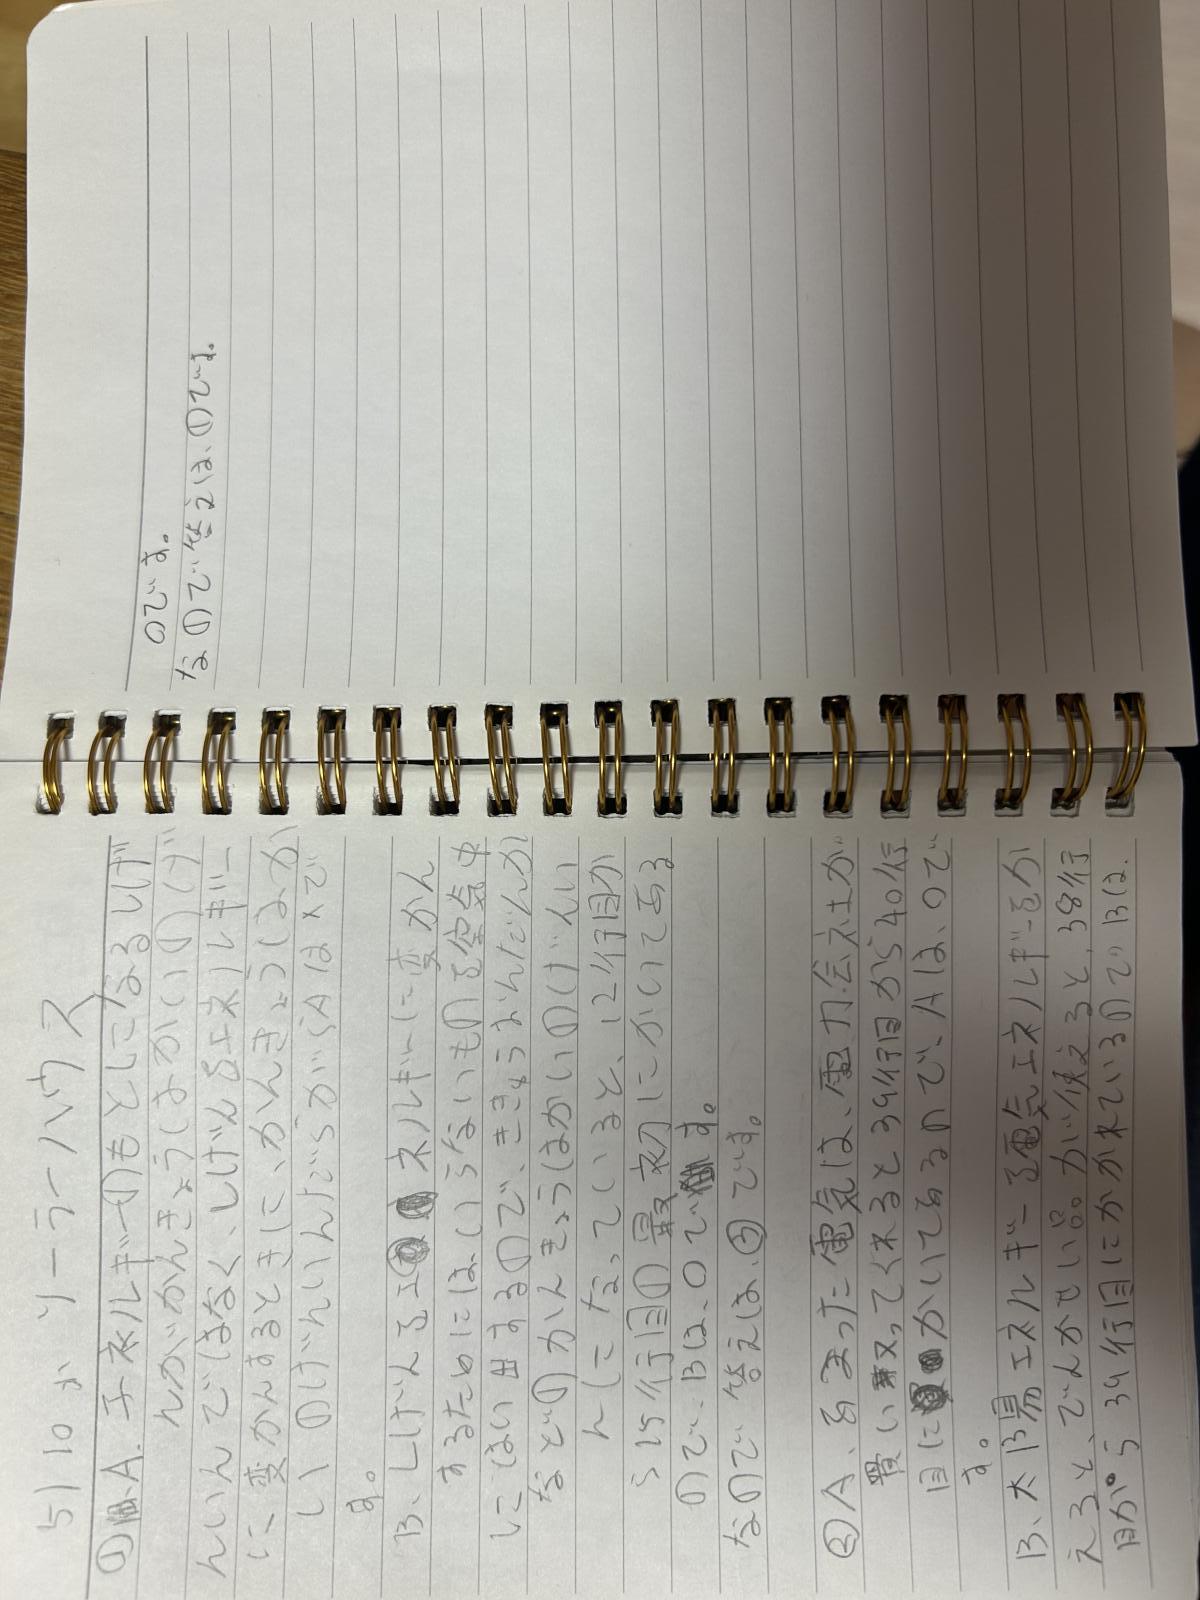 5/10 か ソーラーハウス
① A. エネルギーのもとになるしげ
んがかんきょうはかいのげ
んいんではなく、しげんをエネルギー
に変かんするときに、かんきょうはか
いのげんいんだからがらAは×で
す。
B、しげんをエネルギーに変かん
するためには、いらないものを空気中
にはい出するので、ききょうおんだんか
などのかんきょうはかいのげんい
んになっていると、12行目か
ら15行目の最初にかいてある
ので、Bは、○です。
なので答えは、③です。
② A、あまった電気は、電力会社が
買い取ってくれると39行目から40行
目にかいてあるのでAは、○で
す。
B、太陽エネルギーを電気エネルギーをか
えると、でんかせい品が使えると、38行
目から39行目にかかれているのでBは、
○です。
なので答えは、①です。